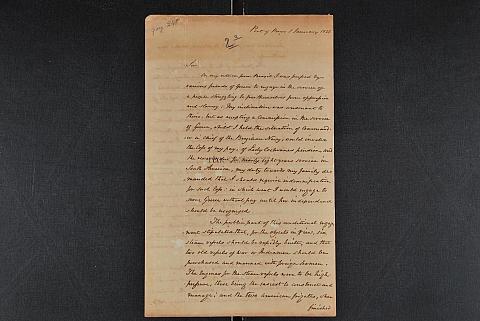 Port of Poros 1 January 1828
Sir
On my return from Brazil I was pressed by
various friends of Greece to engage in the service of
a people struggling to free themselves from oppression
and slavery: My inclination was consonant to
theirs, but as accepting a Commission in the service
of Greece, whilst I held the situation of Command
er in chief of the Brazilian Navy, would involve
the loss of my pay, of Lady Cochrane's pension, and
the reward due for nearly eight years service in
South America, my duty towards my family de
manded that I should require indemnification
for such loss: in which event I would engage to
serve Greece without pay until her independence
should be recognised
The public part of this conditional engage
ment stipulated that, for the objects in view, six
steam vessels should be rapidly built, and that
two old vessels of war or Indiamen should be
purchased and manned with foreign seamen.
The Engines for the steam vessels were to be high
pressure, these being the easiest to construct and
manage; and the two American frigates, when
finished